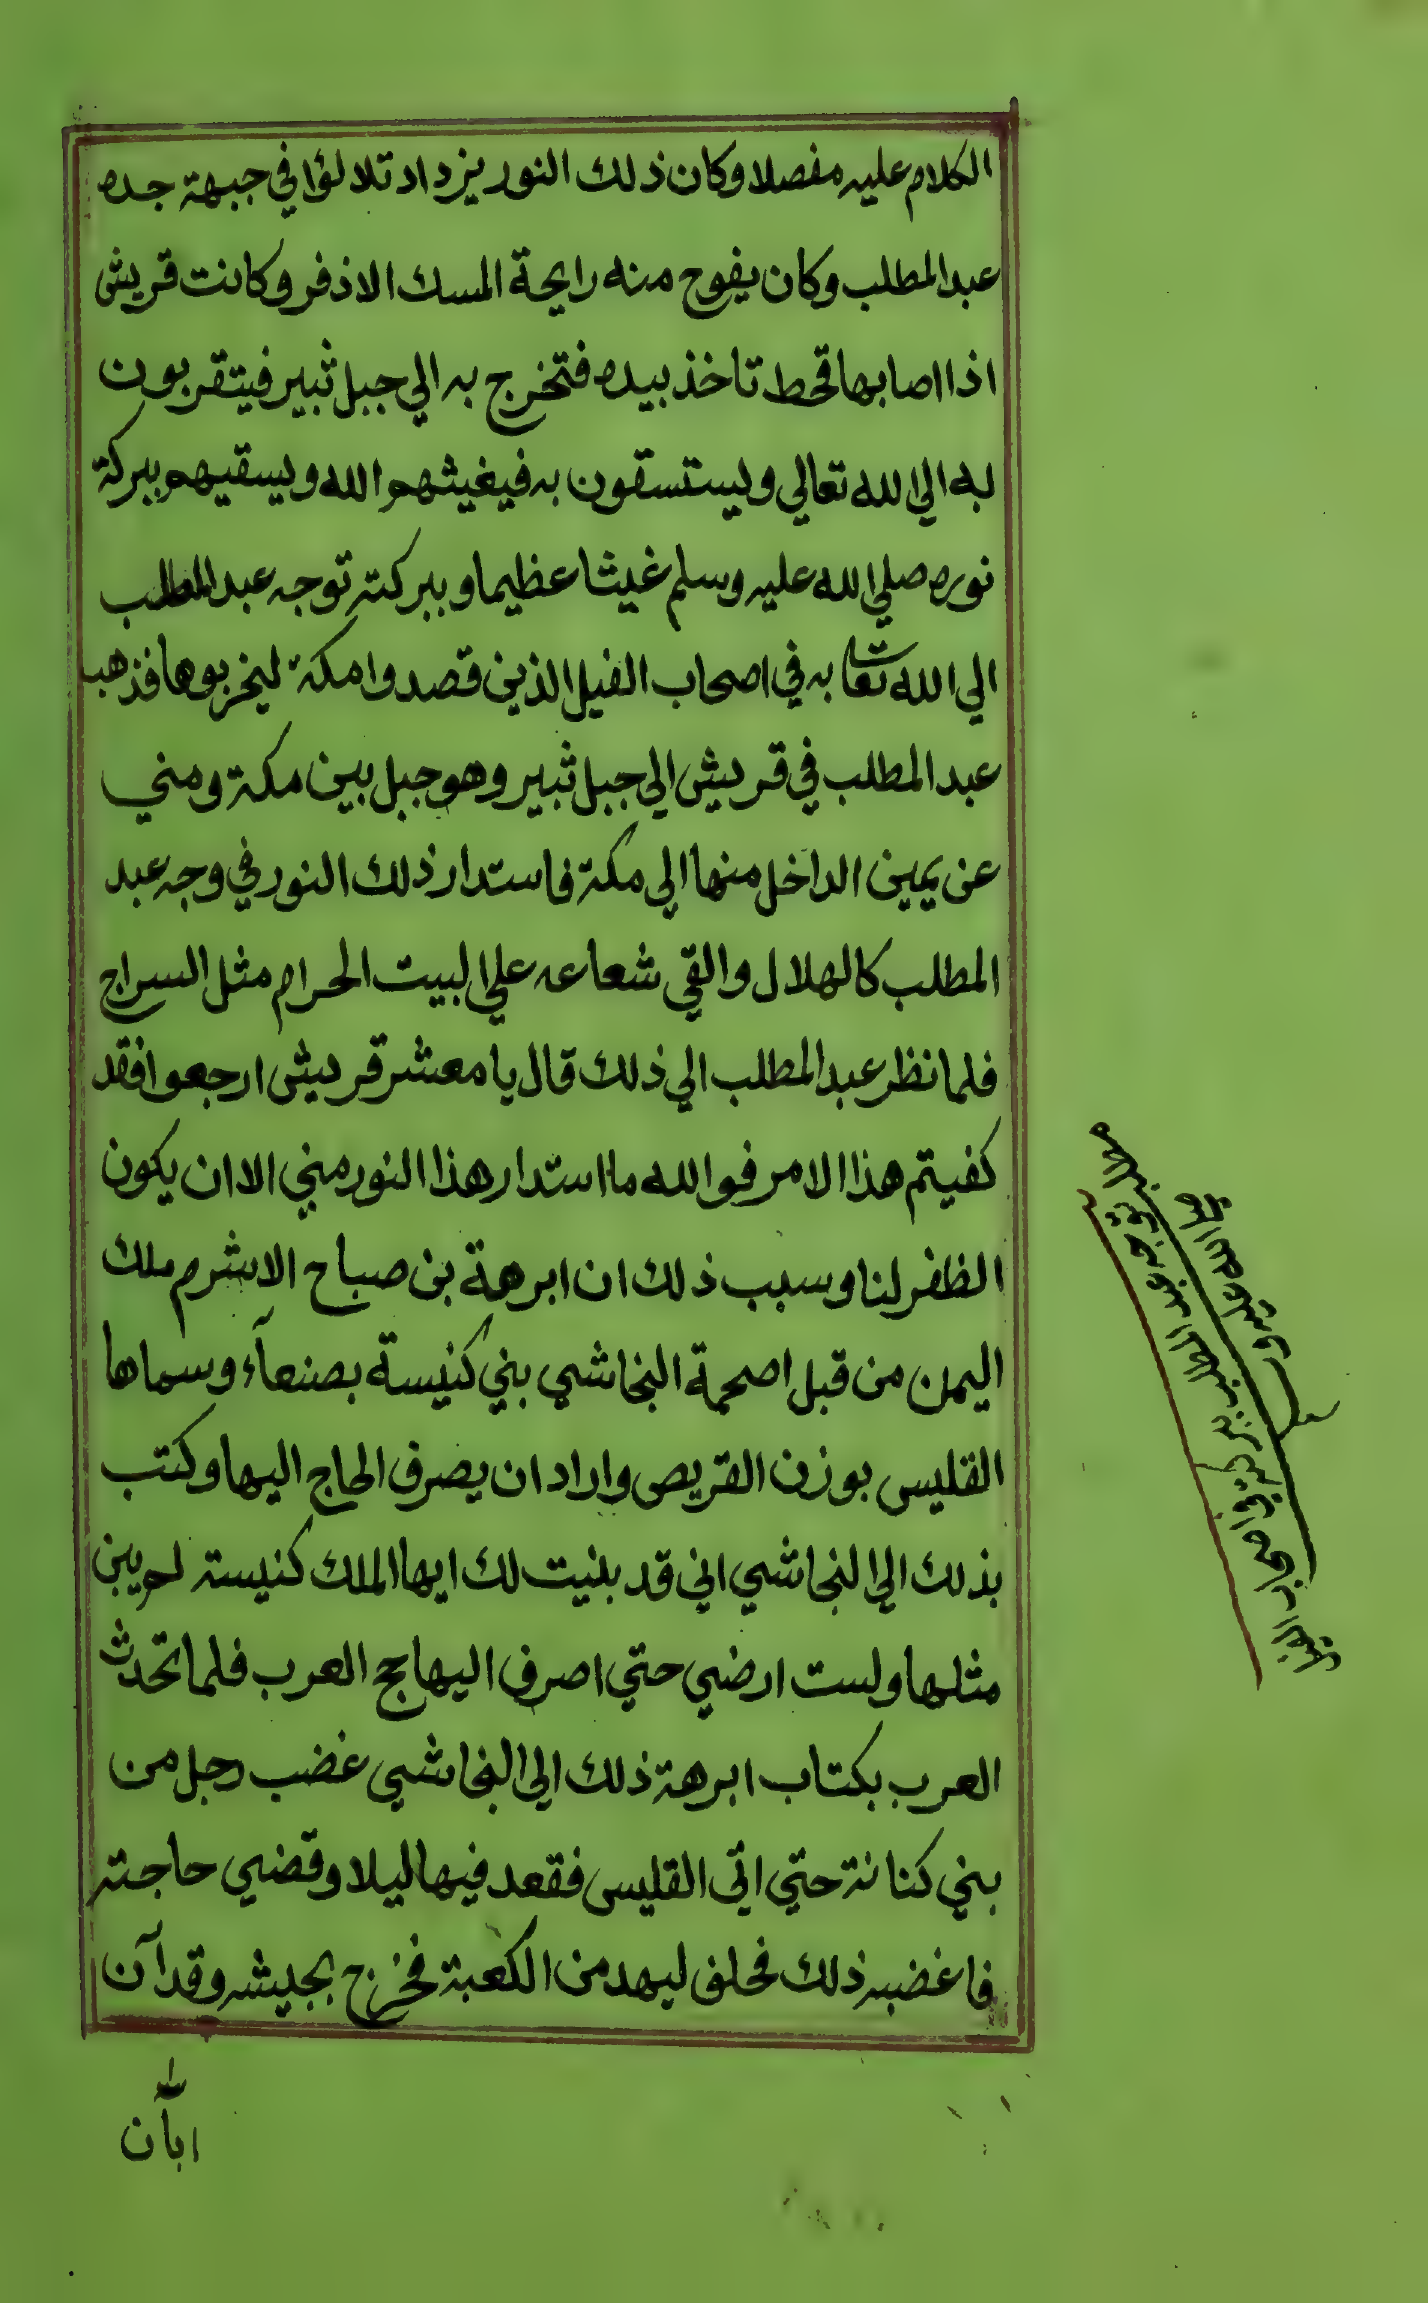 الكلام عليه مفصلا وكان ذلك النور يزداد تلالؤا في جبهة جده
عبد المطلب وكان يفوح منه رايحة المسك الاذفر وكانت قريش
اذا اصابها قحط تاخذ بيده فتخرج به الي جبل ثبير فيتقربون
به الي الله تعالي ويستسقون به فيغيثهم الله ويسقيهم ببركة
نوره صلي الله عليه وسلم غيثا عظيما وببركته توجه عبد المطلب
الي الله تعا به في اصحاب الفيل الذين قصدوا مكة ليخربوها فذهب
عبد المطلب في قريش الي جبل ثبير وهو جبل بين مكة ومني
عن يمين الداخل منها الي مكة فاستدار ذلك النور في وجه عبد
المطلب كالهلال والقي شعاعه علي البيت الحرام مثل السراج
فلما نظر عبد المطلب الي ذلك قال يا معشر قريش ارجعوا فقد
كفيتم هذا الامر فوالله ما استدار هذا النور مني الا ان يكون
الظفر لنا وسبب ذلك ان ابرهة بن صباح الاشرم ملك
اليمن من قبل اصحمة النجاشي بني كنيسة بصنعآء وسماها
القليس بوزن القريص واراد ان يصرف الحاج اليها وكتب
بذلك الي النجاشي اني قد بنيت لك ايها الملك كنيسة لم يبن
مثلها ولست ارضي حتي اصرف اليها حج العرب فلما تحدث
العرب بكتاب ابرهة ذلك الي النجاشي غضب رجل من
بني كنانة حتي اتي القليس فقعد فيها ليلا وقضي حاجته
فاغضبه ذلك فحلف ليهدمن الكعبة فخرج بجيشه وقد آن
توجه عبد المطلب ببركته في اصحاب الفيل
صلي الله عليه وسلم